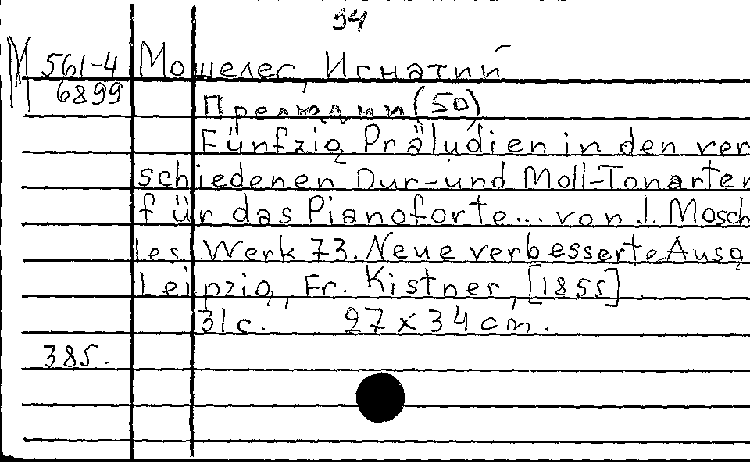 94
М 561-4 Мошелес, Игнатий
6899
Прелюдии (50)
Fünfzig Präludien in den ver
schiedenen Dur-und Moll-Tonarten
für das Pianoforte... von I. Mosch
les Werk 73. Neue verbesserte Ausg
Leipzig, Fr. Kistner, [1855]
31 с. 27 x 34 cm.
385.